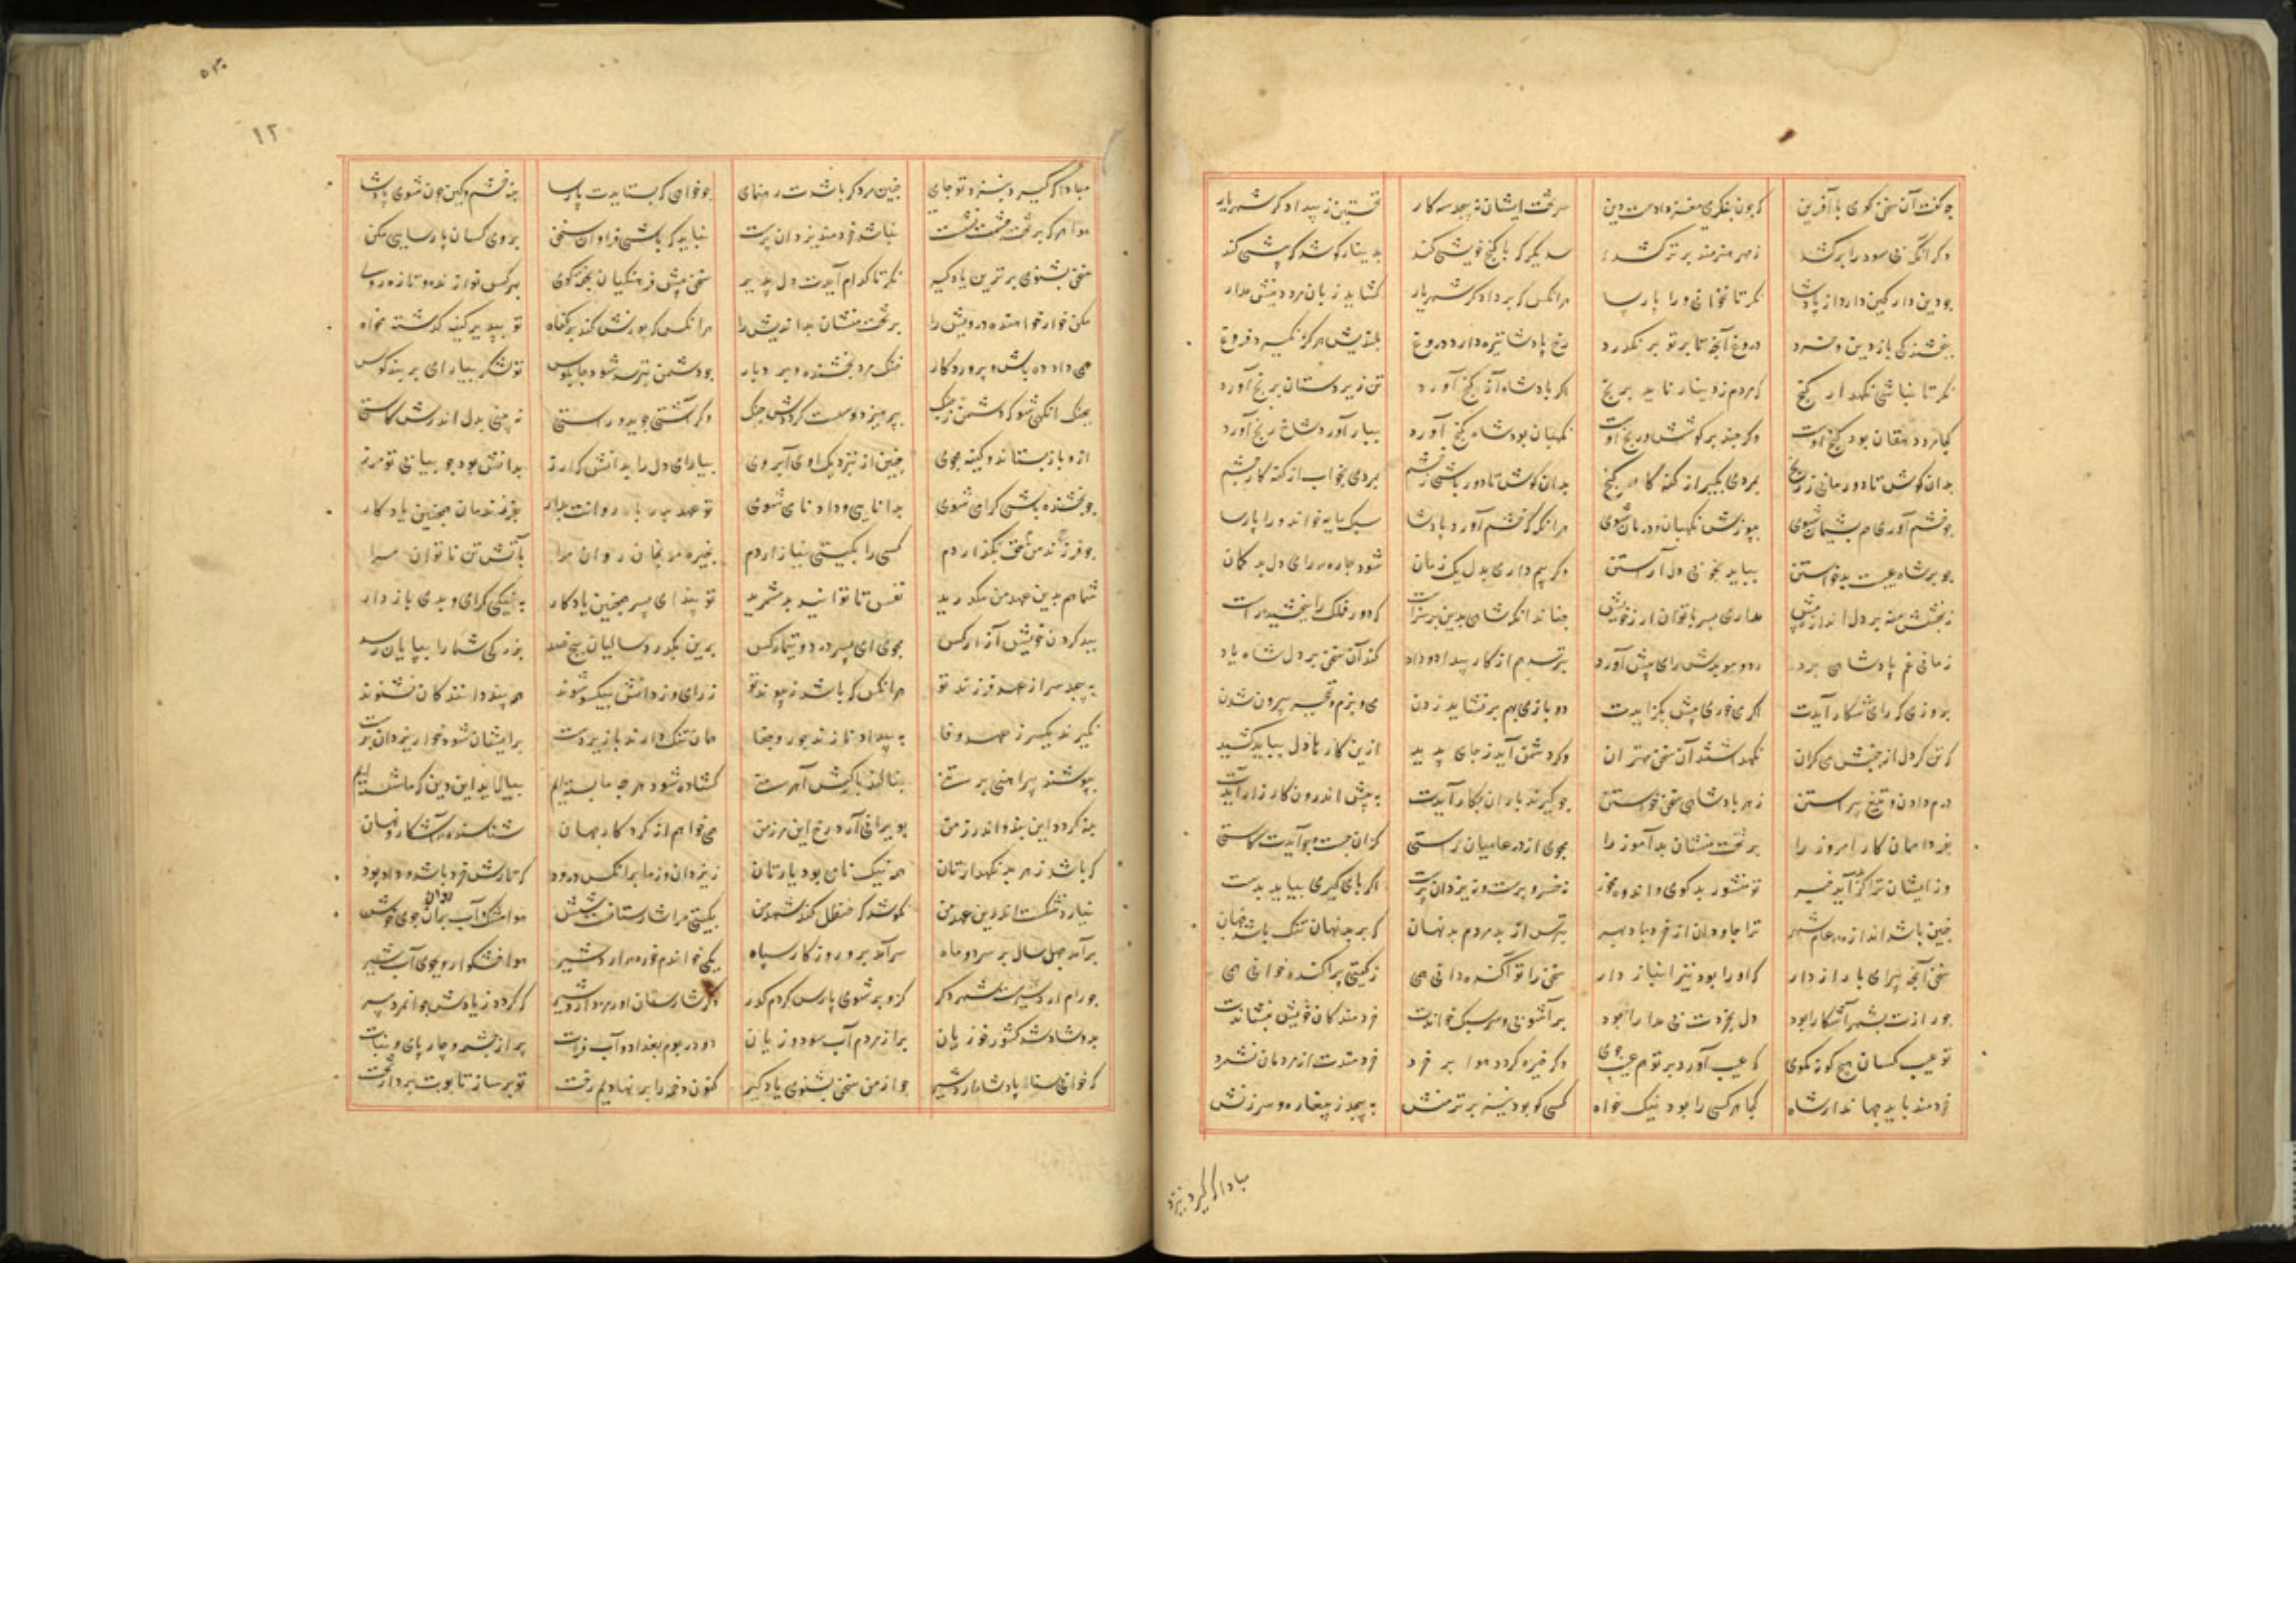 چو گفت آن سخن‌گوی با آفرین که چون بنگری مغز دادست دین سر تخت ایشان نپیچد سه کار نخستین ز بیداد گر شهریار
دگر آنک بی سود را برکشد ز هر هنرمند برتر کشد سدیگر که با گنج خویشی کند بدینار کوشد که بیشی کند
چو دین‌دار کین دارد از پادشا نگر تا نخوانی ورا پارسا هرانکس که بر دادگر شهریار گشاید زبان مرد دینش مدار
ببخشندگی یاز و دین و خرد دروغ آنچ تا بر تو بر نگذرد رخ پادشا تیره دارد دروغ بلندیش هرگز نگیرد فروغ
نگر تا نباشی نگهدار گنج که مردم ز دینار ناید برنج اگر پادشاه آز گنج آورد تن زیردستان برنج آورد
کجا مرد دهقان بود گنج اوست وگر چند بر کوشش و رنج اوست نگهبان بود شاه گنج آورد ببار آورد شاخ رنج آورد
بدان کوش تا دور مانی ز رنج بمردی بگیر از گنه‌کار گنج بدان کوش تا دور باشی ز خشم بمردی بخواب از گنه‌کار چشم
چو خشم آوری هم پشیمان شوی بپوزش نگهبان درمان شوی هرانگه که خشم آورد پادشا سبک‌مایه خواند ورا پارسا
چو بر شاه عیبست بد خواستن بباید بخوبی دل آراستن وگر بیم داری بدل یک زمان شود چاره و رای دل بدگمان
ز بخشش منه بر دل اندازه بیش مدار ای پسر تا توان ارز خویش چنان دانکه شاهی بدین برتر است که دور فلک را ببخشید راست
زمانی غم پادشاهی برد رد و موبدش رای پیش آورد بپرسد هم از کار بیداد و داد کند آن سخن بر دل شاه یاد
بروزی که رای شکار آیدت اگر می‌خوری پیش بگزایدت دو بازی بهم بر نشاید زدن می و بزم و نخچیر بیرون شدن
که تن گردد از جنبش می گران نگهداشتند آن سخن مهتران وگر دشمن آید ز جای پدید ازین کارها دل بباید کشید
درم دادن و تیغ پیراستن ز هر پادشاهی سخن خواستن چو گیرند یاران بکار آیدت به پیش اندرون کارزار آیدت
بفردا ممان کار امروز را بر تخت منشان بدآموز را مجوی از در عامیان راستی کزان جست و جو آیدت کاستی
وز ایشان ترا گر بد آید خبر تو مشنو ز بدگوی و انده مخور نه خسرو پرست و نه یزدان پرست اگر پای گیری بباید بدست
چنین باشد اندازه عام شهر ترا جاودان از خرد باد بهر بترس از بد مردم بد نهان که بر بد نهان تنگ باشد جهان
سخن هیچ مسرای با رازدار که او را بود نیز انباز دار سخن را تو آگنده دانی همی ز گیتی پراکنده خوانی همی
چو رازت بشهر آشکارا بود دل بخردت بی مدارا بود برآشوبی و سر سبک خواندت خردمند کان خویش بنشاندت
تو عیب کسان هیچ گونه مگوی که عیب آورد بر تو هم عیب‌جوی وگر خیره گردد هوا بر خرد خردمندت از مردمان نشمرد
خردمند باید جهاندار شاه کجا هر کسی را بود نیکخواه کسی کو بود تیز و برترمنش بپیچد ز پیغاره و سرزنش
مبادا که گیرد بنزد
۱۲
مبادا که گیرد بنزد تو جای چنین مرد گر باشدت رهنمای چو خواهی که بستایدت پارسا بنه خشم و کین چون شوی پادشا
هوا هر که بر تخت حشمت نشست نباشد خردمند یزدان پرست نباید که باشی فراوان سخن بروی کسان پارسایی مکن
سخن بشنوی برترین یاد گیر نگر تا کدام آیدت دلپذیر سخن پیش فرهنگیان سخته گوی بهر کس نوازنده و تازه روی
مکن خوار خواهنده درویش را بر تخت منشان بداندیش را هرانکس که پوزش کند بر گناه تو بپذیر کین گذشته مخواه
همی داد ده باش و پروردگار خنک مرد بخشنده و بردبار چو دشمن بترسد شود چاپلوس تو لشکر بیارای و بربند کوس
بجنگ آنگهی شو که دشمن ز جنگ بپرهیزد و سست گردد بجنگ وگر آشتی جوید و راستی نبینی بدل اندرش کاستی
ازو باژ بستان و کینه مجوی چنین دار نزدیک او آبروی بیارای دل را بدانش که ارز بدانش بود چو بیابی تو مرز
چو بخشنده باشی گرامی شوی بدانایی و داد نامی شوی تو عهد پدر با روانت بدار بفرزند مان همچنین یادگار
چو فرزند من حق بگذاردم کسی را بگیتی نیازاردم بخیره مرنجان روان مرا بآتش تن ناتوان مرا
شما هم بدین عهد من بگذرید نفس تا توانید بد مشمرید تو پند ای پسر همچنین یاد دار به نیکی گرای و بدی باز دار
ببد کردن خویش و آزار کس مجوی ای پسر درد و تیمار کس برین بگذرد سالیان پنج صد بزرگی شما را بپایان رسد
بپیچد سر از عهد فرزند تو هرانکس که باشد ز پیوند تو ز رای و ز دانش بیکسو شوند همه پند دانندگان نشنوند
بگیرند یکسر ز عهد و وفا به بیداد یازند و جور و جفا جهان تنگ دارند بر زیردست بر ایشان شود خوار یزدان پرست
بپوشند پیراهن بدتنی ببالند با کیش آهرمنی گشاده شود هرچه ما بسته‌ایم ببالاید این دین که ما شسته‌ایم
تبه گردد این پند و اندرز من بویرانی آرد رخ این مرز من همی خواهم از کردگار جهان شناسنده آشکار و نهان
که باشد ز هر بد نگهدارتان همه نیک نامی بود یارتان ز یزدان و ز ما بر آنکس درود که تارش خرد باشد و داد پود
نیارد شکست اندرین عهد من نکوشد که حنظل کند شهد من بگیتی مرا شارستانست شش هوا مشک و آب روان جوی خوش
برآمد چهل سال بر سر دو ماه سرآمد برو روزگار سپاه یکی خواندم خوره اردشیر هوا خوشگوار و بجوی آب شیر
چو رام اردشیرست شهری دگر کزو بر سوی پارس کردم گذر دگر شارستان اورمزد اردشیر که گردد ز بادش جوانمرد پیر
بدو شاد شد کشور خوزیان پر از مردم آب و سود و زیان دو در بوم بغداد و آب فرات پر از چشمه و چارپای و نبات
که خوانی بنا پادشاه اردشیر چو از من سخن بشنوی یاد گیر کنون دخمه را بر نهادیم رخت تو برساز تابوت و پرداز تخت